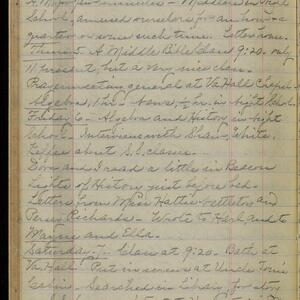 School, amused ourselves for an hour & a
quarter or some such time. Letter home.
Thurs. 5 - A Middle Bible Class 9:20. only
11 present, but a very nice class.
Prayer meeting general at Va. Hall Chapel.
Algebra, 1 hr. in Night School.
Friday 6 - Algebra and History in Night
School. Interviews with Dean, White,
about S.S. classes.
Dora and I read a little in Beacon
Lights of History just before bed.
Letters from Miss Hattie and
Percy Richards. Wrote to Herb. and to
Mayme and Ella.
Saturday - 7 - Class at 9:20. Bath at
Va. Hall. Put in screens at Uncle Tom's
Cabin. Searched in Library for story